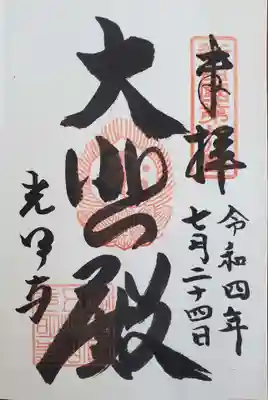 奉拝
令和四年
七月二十四日
大興殿
光明寺